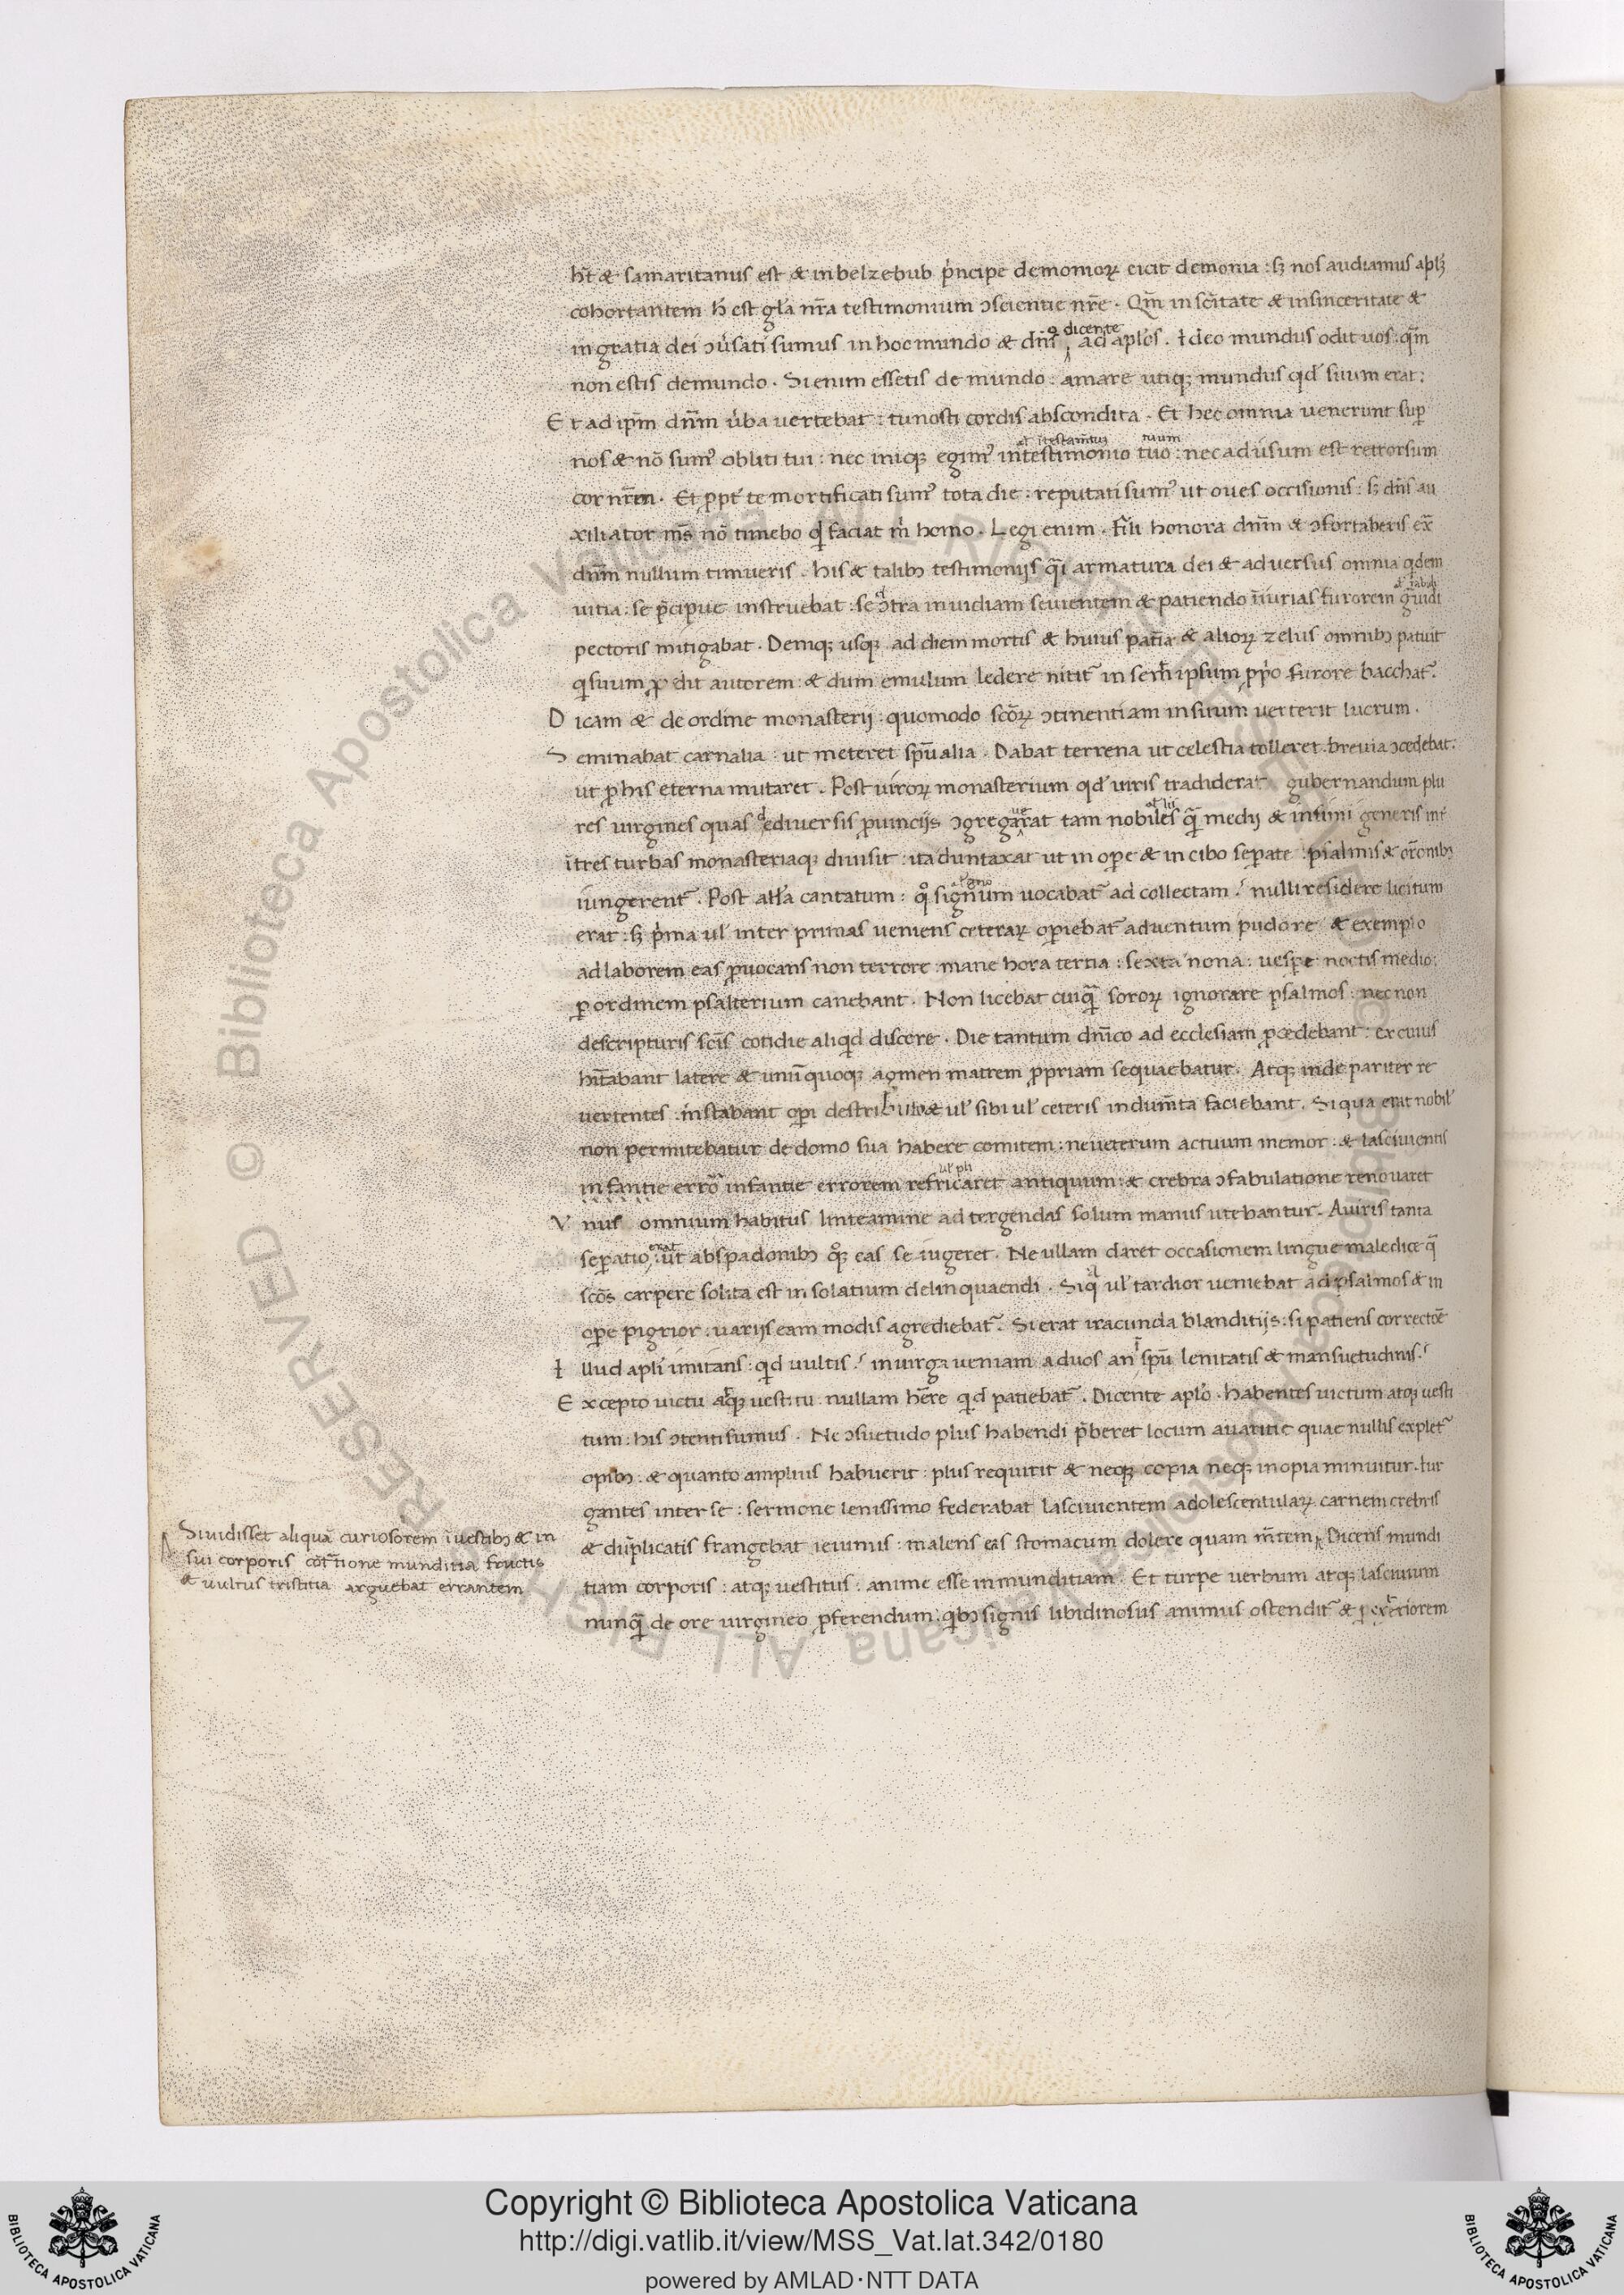 hn̄t & samaritanus est & in belzebub pͥncipe demonioꝝ eicit demonia : sꝫ nos audiamus apl̄ꝫ
cohortantem h̄ est gl̄a nr̄a testimonium ꝯscientie nr̄e . Qm̄ in sc̄itate & in sinceritate &
in gratia dei ꝯuͥsati sumus in hoc mundo & dn̄s dicente ad apl̄os . ideo mundus odit uos : qm̄
non estis de mundo . Si enim essetis de mundo : amaret utiqꝫ mundus qd̄ suum erat :
Et ad ip̄m dn̄m uͥba vertebat : tu nosti cordis abscondita . Et hec omnia venerunt sup̄
nos & nō sumꝰ obliti tui : nec iniqꝫ egimꝰ in testimonio tuo : nec aduͥsum est retrorsum
cor nr̄m . Et ꝓpt̄ te mortificati sumꝰ tota die : reputati sumꝰ ut oues occisionis : sꝫ dn̄s au
xiliator ms̄ nō timebo qͥd faciat mͥ homo . Legi enim . Fili honora dn̄m & ꝯfortaberis ex̄
dn̄m nullum timueris . his & talibꝫ testimonijs qͣi armatura dei & adversus omnia qͥdem
uitia : se p̄cipue instruebat : sed ꝯtra inuidiam seuientem & patiendo iniurias furorem gͣuidi
pectoris mitigabat . Deniqꝫ usqꝫ ad diem mortis & huius patn̄a & alioꝝ zelus omnibꝫ patuit
qͥ suum ꝓdit autorem : & dum emulum ledere nitit᷑ in sem̄ ipsum ꝓpͥo furore bacchat᷑ .
Dicam & de ordine monasterij : quomodo sc̄oꝝ ꝯtinentiam in suum verterit lucrum .
Seminabat carnalia : ut meteret sp̄ualia . Dabat terrena ut celestia tolleret . brevia ꝯcedebat :
ut ꝓ his eterna mutaret . Post viroꝝ monasterium qd̄ viris tradiderat gubernandum plu
res virgines quas e diversis ꝓuincijs ꝯgregarat tam nobiles qͣ̄ medij & infimi generis int̄
ītres turbas monasteriaqꝫ divisit : ita duntaxat ut in oꝑe & in cibo seꝑate : psalmis & or̄onibꝫ
iungerent᷑ . Post all̄a cantatum : qͦ signum uocabat᷑ ad collectam : nulli residere licitum
erat : sꝫ pͥma ul̄ inter primas veniens ceteraꝝ oꝑiebat᷑ adventum pudore & exemplo
ad laborem eas ꝓuocans non terrore : mane hora tertia : sexta nona : vesꝑe noctis medio :
ꝑ ordinem psalterium canebant . Non licebat cuiqͣ̄ soroꝝ ignorare psalmos : nec non
de scripturis sc̄is cotidie aliqͥd discere . Die tantum dn̄ico ad ecclesiam ꝓcedebant : ex cuius
hīt̄abant latere & unū quoqꝫ agmen matrem ꝓpriam sequaebatur . Atqꝫ inde pariter re
vertentes : instabant oꝑi destributo & ul̄ sibi ul̄ ceteris indum̄ta faciebant . Si qua erat nobil̄
non permitebatur de domo sua habere comitem : ne veterum actuum memor : & lascivientis
infantie erro᷑ infantie errorem refricaret antiquum : & crebra ꝯfabulatione renovaret
Unus omnium habitus linteamine ad tergendas solum manus utebantur . A viris tanta
seꝑatio erat : ut a bspadonibꝫ qͦqꝫ eas seiugeret . Ne ullam daret occasionem lingue maledice qͤ
sc̄os carpere solita est in solatium delinquaendi . Si qͣ ul̄ tardior veniebat ad psalmos & in
oꝑe pigrior : varijs eam modis agrediebat᷑ . Si erat iracunda blanditijs : si patiens correctōe
Illud apl̄i imitans : qͥd vultis : in virga veniam ad vos an sp̄u lenitatis & mansuetudinis :
Excepto victu atqꝫ vestitu nullam her̄e qͥd patiebat᷑ . Dicente apl̄o . habentes victum atqꝫ vesti
tum : his ꝯtenti sumus . Ne ꝯsuetudo plus habendi p̄beret locum avaritie quae nullis explet᷑
opibꝫ : & quanto amplius habuerit : plus requirit & neqꝫ copia neqꝫ inopia minuitur . Iur
gantes inter se : sermone lenissimo federabat lascivientem adolescentulaꝝ carnem crebris
& duplicatis frangebat ieiuniis : malens eas stomacum dolere quam mn̄tem . Dicens mundi
tiam corporis : atqꝫ vestitus : anime esse inmunditiam . Et turpe verbum atqꝫ lascivum
nunqͣ̄ de ore virgineo ꝓferendum : qͥbꝫ signis libidinosus animus ostendit᷑ & ꝑ exteriorem
Si vidisset aliquā curiosorem ī vestibꝫ & in
sui corporis cōt᷑tione munditia fructis
& vultus tristitia arguebat errantem
© Biblioteca Apostolica Vaticana ALL RIGHTS RESERVED
Copyright © Biblioteca Apostolica Vaticana
http://digi.vatlib.it/view/MSS_Vat.lat.342/0180
powered by AMLAD·NTT DATA
BIBLIOTECA APOSTOLICA VATICANA
BIBLIOTECA APOSTOLICA VATICANA